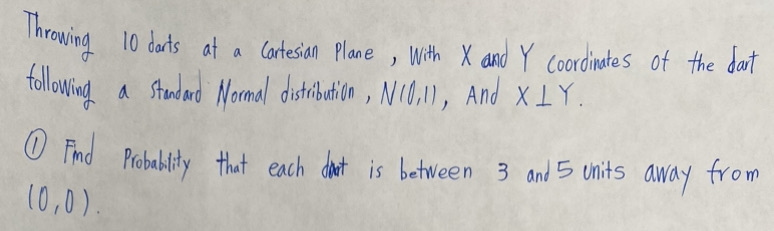 Throwing 10 darts at a Cartesian Plane , With X and Y Coordinates of the dart
following a Standard Normal distribution , N(0,1), And X⊥Y.
① Find Probability that each dart is between 3 and 5 units away from
(0,0).